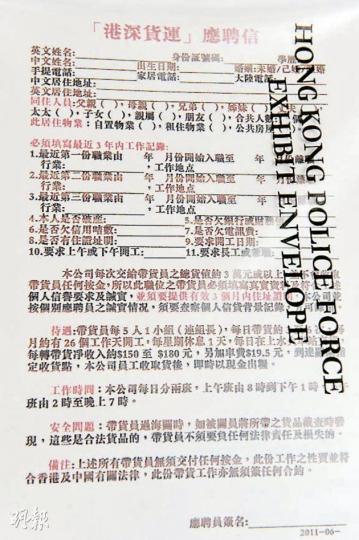 「港深貨運」應聘信
英文姓名: 身份証號碼: 學歷
中文姓名: 出生日期: 婚姻:未婚/已婚/
手提電話: 家居電話: 大陸電話:
中文居住地址:
英文居住地址:
同住人員:父親( ),母親( ),兄弟( ),姊妹( )
太太( ),子女( ),親屬( ),朋友( ),合共人數
此居住物業:自置物業( ),租住物業( ),公共房屋
必須填寫最近3年內工作記錄:
1.最近第一份職業由 年 月份開始入職至 年
行業: ,工作地點
2.最近第二份職業由 年 月份開始入職至 年
行業: ,工作地點
3.最近第三份職業由 年 月份開始入職至 年
行業: ,工作地點
4.本人是否破產: 5.是否欠銀行或財務
6.是否欠信用咭數: 7.是否欠電訊費:
8.是否有住屋址開: 9.要求開工日期:
10.要求上午或下午開工: 11.要求長工或兼職:
本公司每次交給帶貨員之總貨值約3萬元或以上
帶貨員任何按金,所以此職位之帶貨員必須填寫真實資料及
個人信譽要求及誠實,並須要提供有效3個月內住址證 本公司並
按個別應聘員之誠實情況,須要查察個人信貸背景記錄
待遇:帶貨員每5人1小組(連組長),每日帶貨約
月約有26個工作天開工,每星期休息1天,每日在上水
每轉帶貨淨收入約$150至$180元,另加車費$19.5元,到達
定收貨點,本公司員工收取貨後,即時以現金出糧
工作時間:本公司每日分兩班,上午班由8時到下午1時
班由2時至晚上7時。
安全問題:帶貨員過海關時,如被關員將所帶之貨品截查時發
現,這些是合法貨品的,帶貨員不須要負任何法律責任及損失的。
備注:上述所有帶貨員無須交付任何按金,此份工作之性質並符
合香港及中國有關法律,此份帶貨工作亦無須簽任何合約。
應聘員簽名:
2011-06-
HONG KONG POLICE FORCE
EXHIBIT ENVELOPE
明報